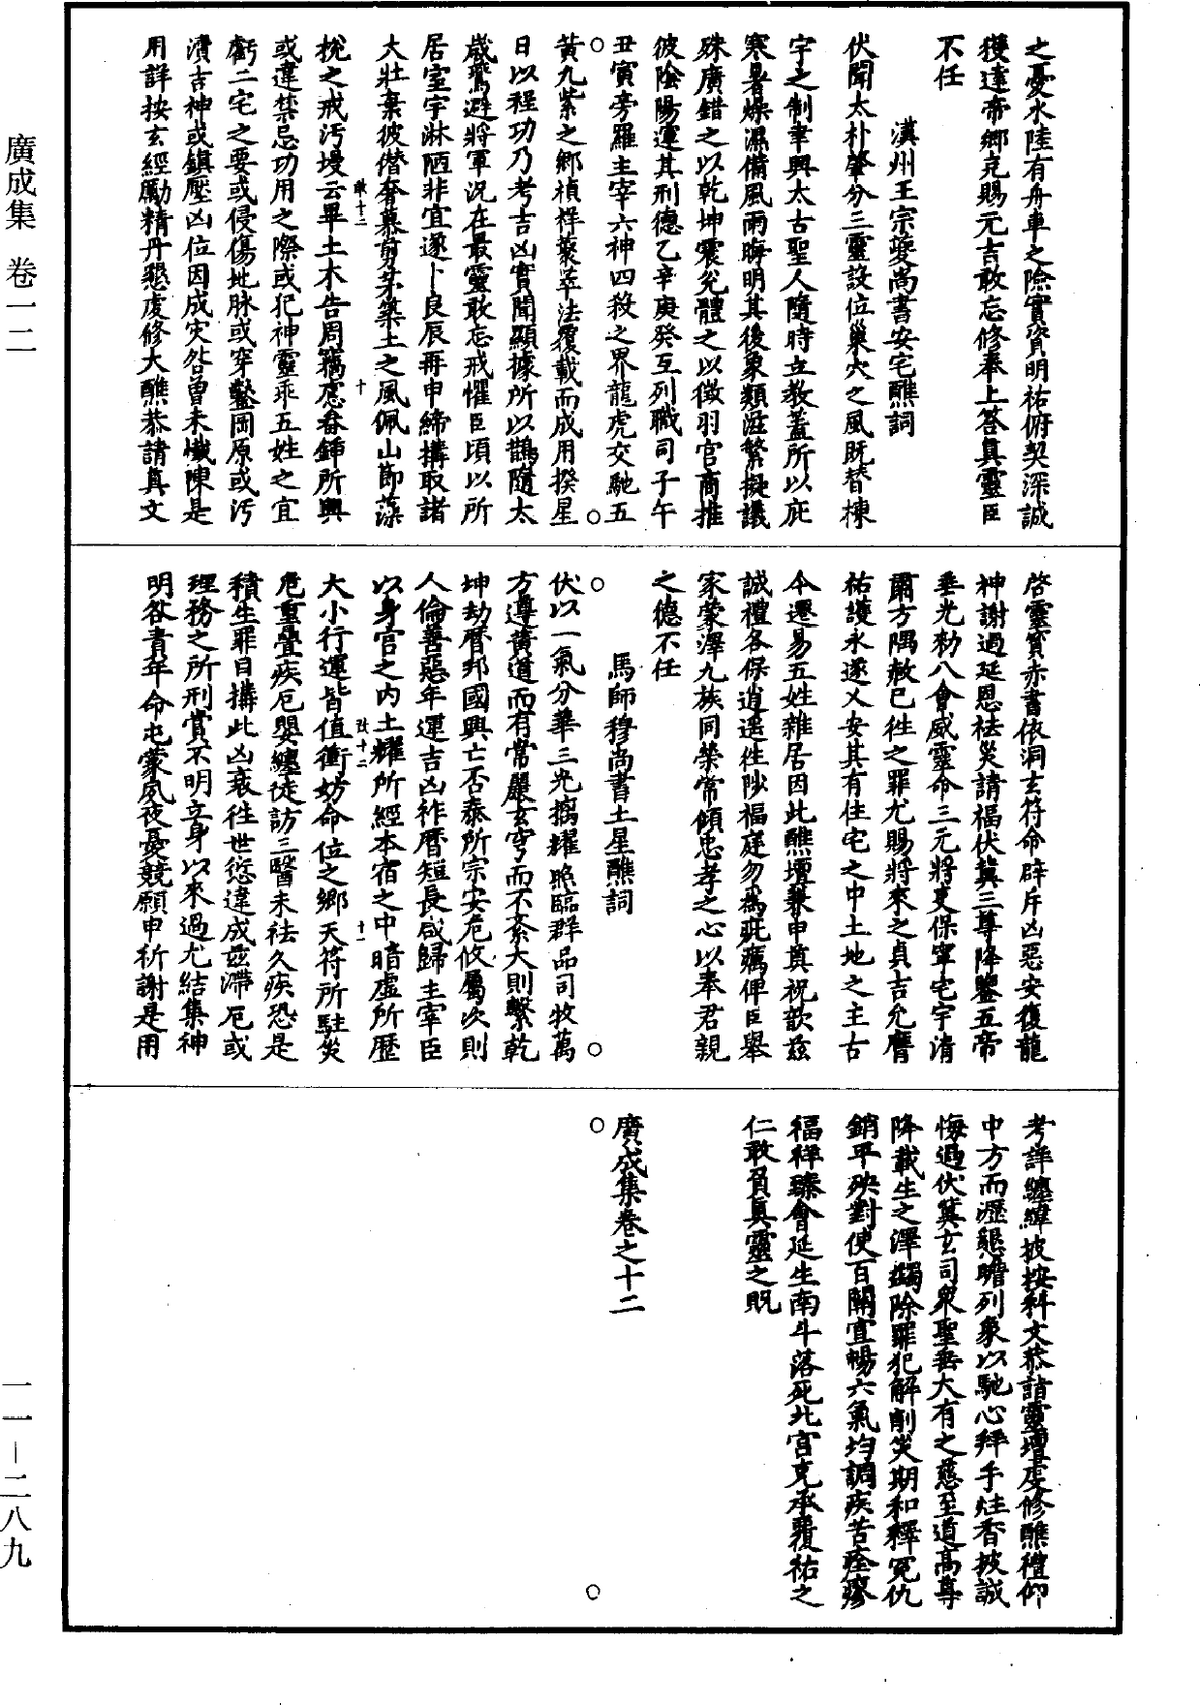 廣成集　卷一二
之憂水陸有舟車之險實資明祐俯契深誠
獲達帝鄉克賜元吉敢忘修奉上答真靈臣
不任
漢州王宗夔尚書安宅醮詞
伏聞太朴肇分三靈設位巢穴之風既替棟
宇之制聿興太古聖人隨時立教蓋所以庇
寒暑燥濕備風雨晦明其後象類滋繁擬議
殊廣錯之以乾坤震兌體之以徵羽宮商推
彼陰陽運其刑德乙辛庚癸互列職司子午
丑寅旁羅主宰六神四殺之界龍虎交馳五
黃九紫之鄉禎祥藂萃法覆載而成用揆星
日以程功乃考吉凶實聞顯據所以鵲隨太
歲鷰避將軍況在最靈敢忘戒懼臣頃以所
居室宇湫陋非宜遂卜良辰再申締搆取諸
大壯棄彼僣奢慕剪茅築土之風佩山節藻
梲之戒汚墁云畢土木告周竊慮畚鍤所興
或違禁忌功用之際或犯神靈乖五姓之宜
虧二宅之要或侵傷地脉或穿鑿岡原或汚
瀆吉神或鎮壓凶位因成灾咎曽未懺陳是
用詳按玄經勵精丹懇虔修大醮恭請真文
啓靈寳赤書依洞玄符命辟斥凶惡安復龍
神謝過延恩祛災請福伏冀三尊降鑒五帝
垂光勑八會威靈命三元將吏保寧宅宇清
肅方隅赦已徃之罪尤賜將來之貞吉允膺
祐護永遂乂安其有住宅之中土地之主古
今遷易五姓雜居因此醮壇兼申奠祝歆茲
誠禮各保逍遥徃陟福庭勿為疵癘俾臣舉
家蒙澤九族同榮常傾忠孝之心以奉君親
之德不任
馬師穆尚書土星醮詞
伏以一氣分華三光摛耀照臨群品司牧萬
方遵黃道而有常嚴玄穹而不紊大則繫乾
坤劫曆邦國興亡否泰所宗安危攸屬次則
人倫善惡年運吉凶祚曆短長咸歸主宰臣
以身宮之內土耀所經本宿之中暗虛所歷
大小行運皆值衝妨命位之鄉天符所駐災
危重疊疾厄嬰纏徒訪三醫未祛久疾恐是
積生罪目搆此凶衰徃世愆違成茲滯厄或
理務之所刑賞不明立身以來過尤結集神
明咎責年命屯蒙夙夜憂兢願申祈謝是用
考詳纏緯披按科文恭詣靈壇虔修醮禮仰
中方而瀝懇瞻列象以馳心拜手炷香披誠
悔過伏冀玄司衆聖垂大有之慈至道高尊
降載生之澤蠲除罪犯解削災期和釋冤仇
銷平殃對使百關宣暢六氣均調疾苦痊瘳
福祥臻會延生南斗落死北宮克承覆祐之
仁敢負真靈之貺
廣成集卷之十二
一一—二八九